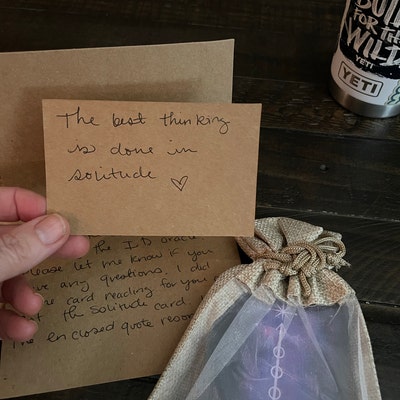 The best thinking
is done in
solitude ♡
the ID oracle
please let me know if you
have any questions. I did
card reading for you
the Solitude card
The enclosed quote
BUILT
FOR THE
WILD
YETI
YETI